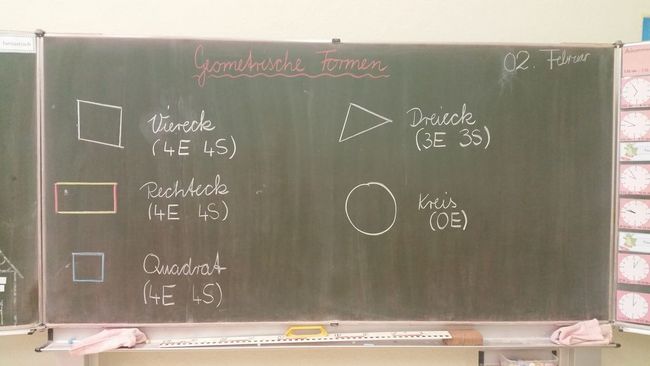 Geometrische Formen
02. Februar
Viereck
(4E 4S)
Rechteck
(4E 4S)
Quadrat
(4E 4S)
Dreieck
(3E 3S)
Kreis
(0E)